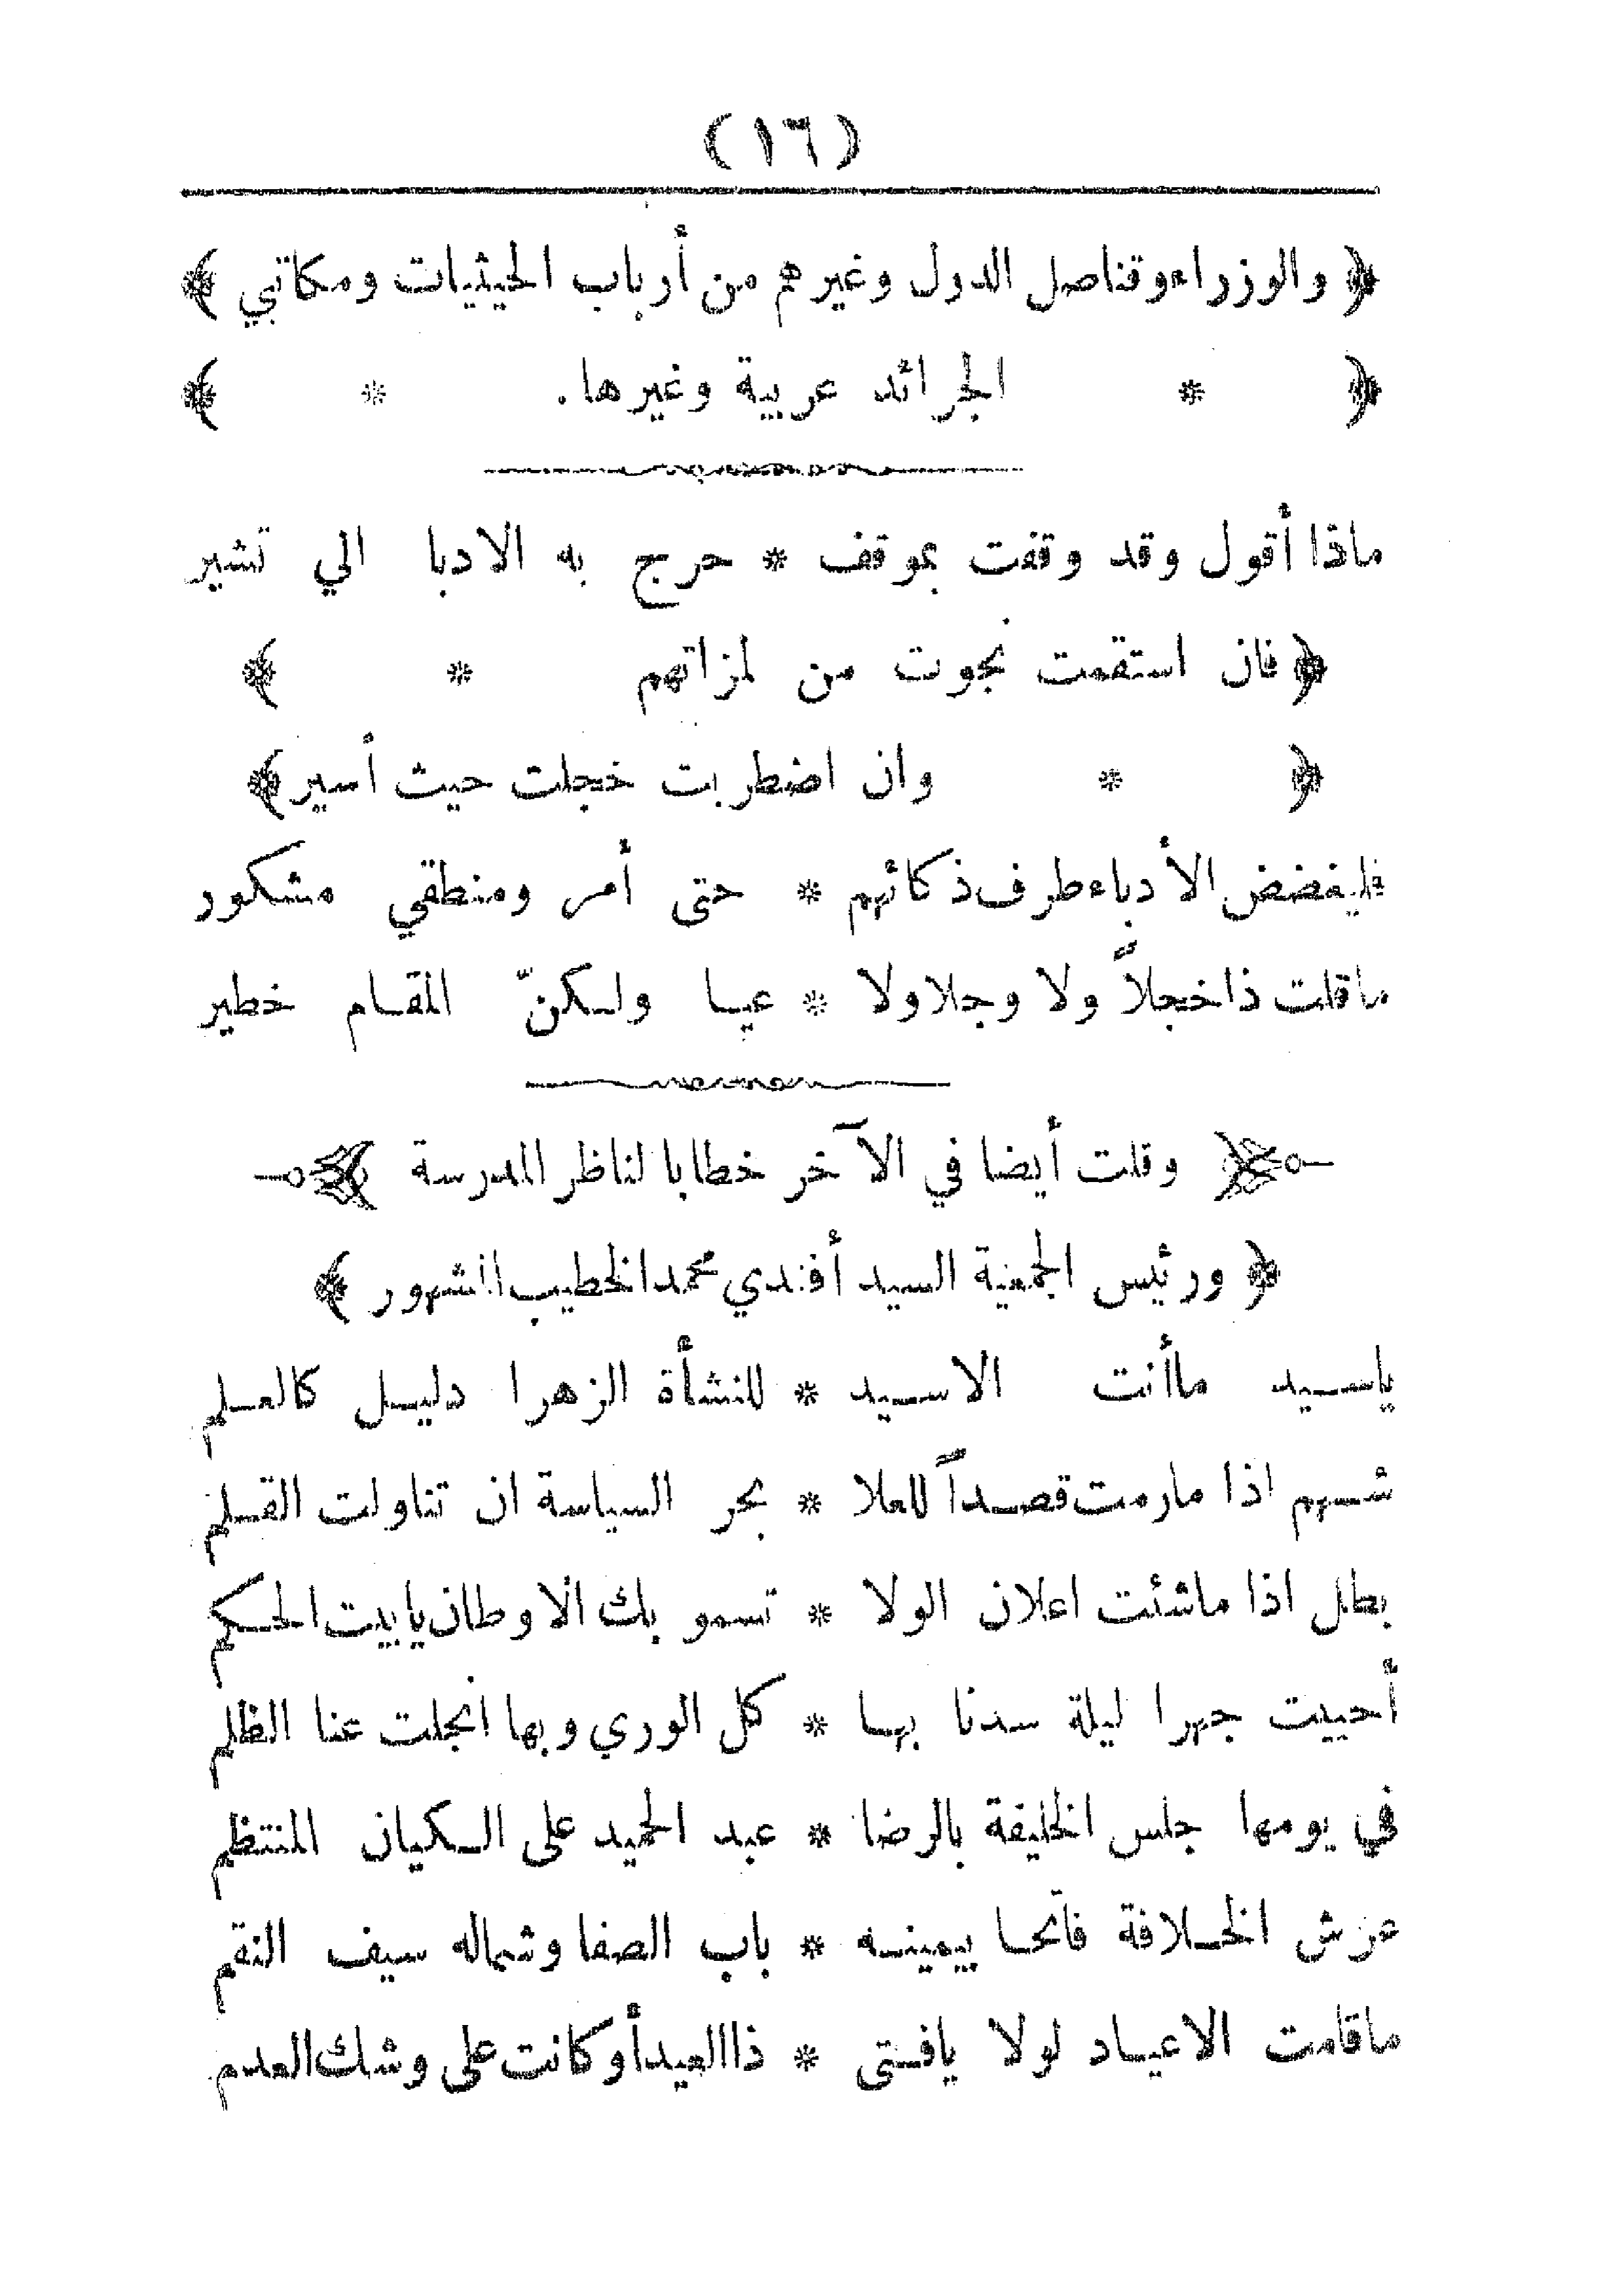 (١٦)
﴿ والوزراء وقناصل الدول وغيرهم من أرباب الحيثيات ومكاتبي ﴾
﴿ * الجرائد عربية وغيرها . * ﴾
ماذا أقول وقد وقفت بموقف * حرج به الادبا الي تشير
﴿ فان استقمت نجوت من لمزاتهم * ﴾
﴿ * وان اضطربت خجلت حيث أسير ﴾
فليغضض الأدباء طرف ذكائهم * حتى أمر ومنطقي مشكور
ماقلت ذا خجلاً ولا وجلا ولا * عيا ولكنّ المقام خطير
وقلت أيضا في الآخر خطابا لناظر المدرسة
﴿ ورئيس الجمعية السيد أفندي محمد الخطيب المشهور ﴾
ياسيد ماأنت الاسيد * للنشأة الزهرا دليل كالعلم
شهم اذا مارمت قصداً للعلا * بحر السياسة ان تناولت القلم
بطل اذا ماشئت اعلان الولا * تسمو بك الاوطان يابيت الحكم
أحييت جهرا ليلة سدنا بها * كل الوري وبها انجلت عنا الظلم
في يومها جلس الخليفة بالرضا * عبد الحميد على الكيان المنتظم
عرش الخلافة فاتحا بيمينه * باب الصفا وشماله سيف النقم
ماقامت الاعياد لولا يافتى * ذا العيد أو كانت على وشك العدم